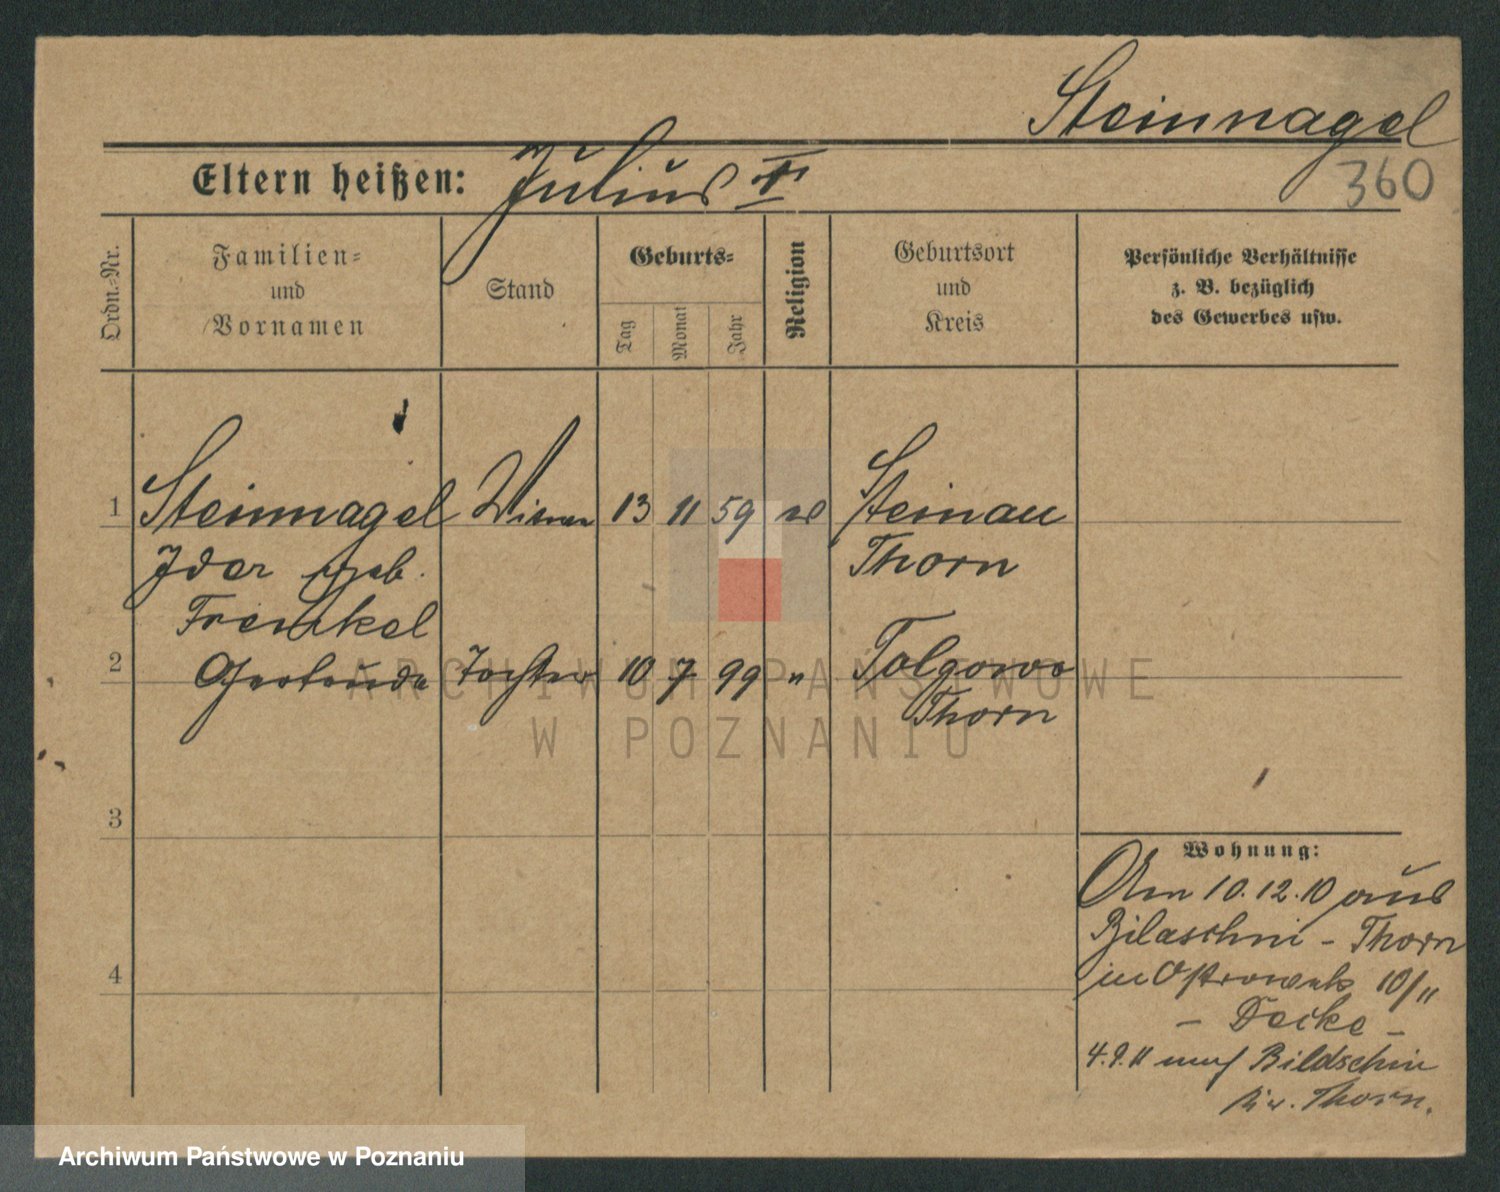 Steinnagel
360
Eltern heißen: Julius †
Ordn.-Nr.
Familien-
und
Vornamen
Stand
Geburts-
Tag
Monat
Jahr
Religion
Geburtsort
und
Kreis
Persönliche Verhältnisse
z. B. bezüglich
des Gewerbes usw.
1 Steinnagel 13 11 59 Steinau
geb. Thorn
Frenkel
2 Gertrude Tochter 10 7 99 " Tolgowo
Thorn
3
4
Wohnung:
Am 10.12.10 aus
Bilaschni - Thorn
in 10/11
- Decke -
4.9.11 Bildschin
Thorn.
ARCHIWUM PAŃSTWOWE
W POZNANIU
Archiwum Państwowe w Poznaniu